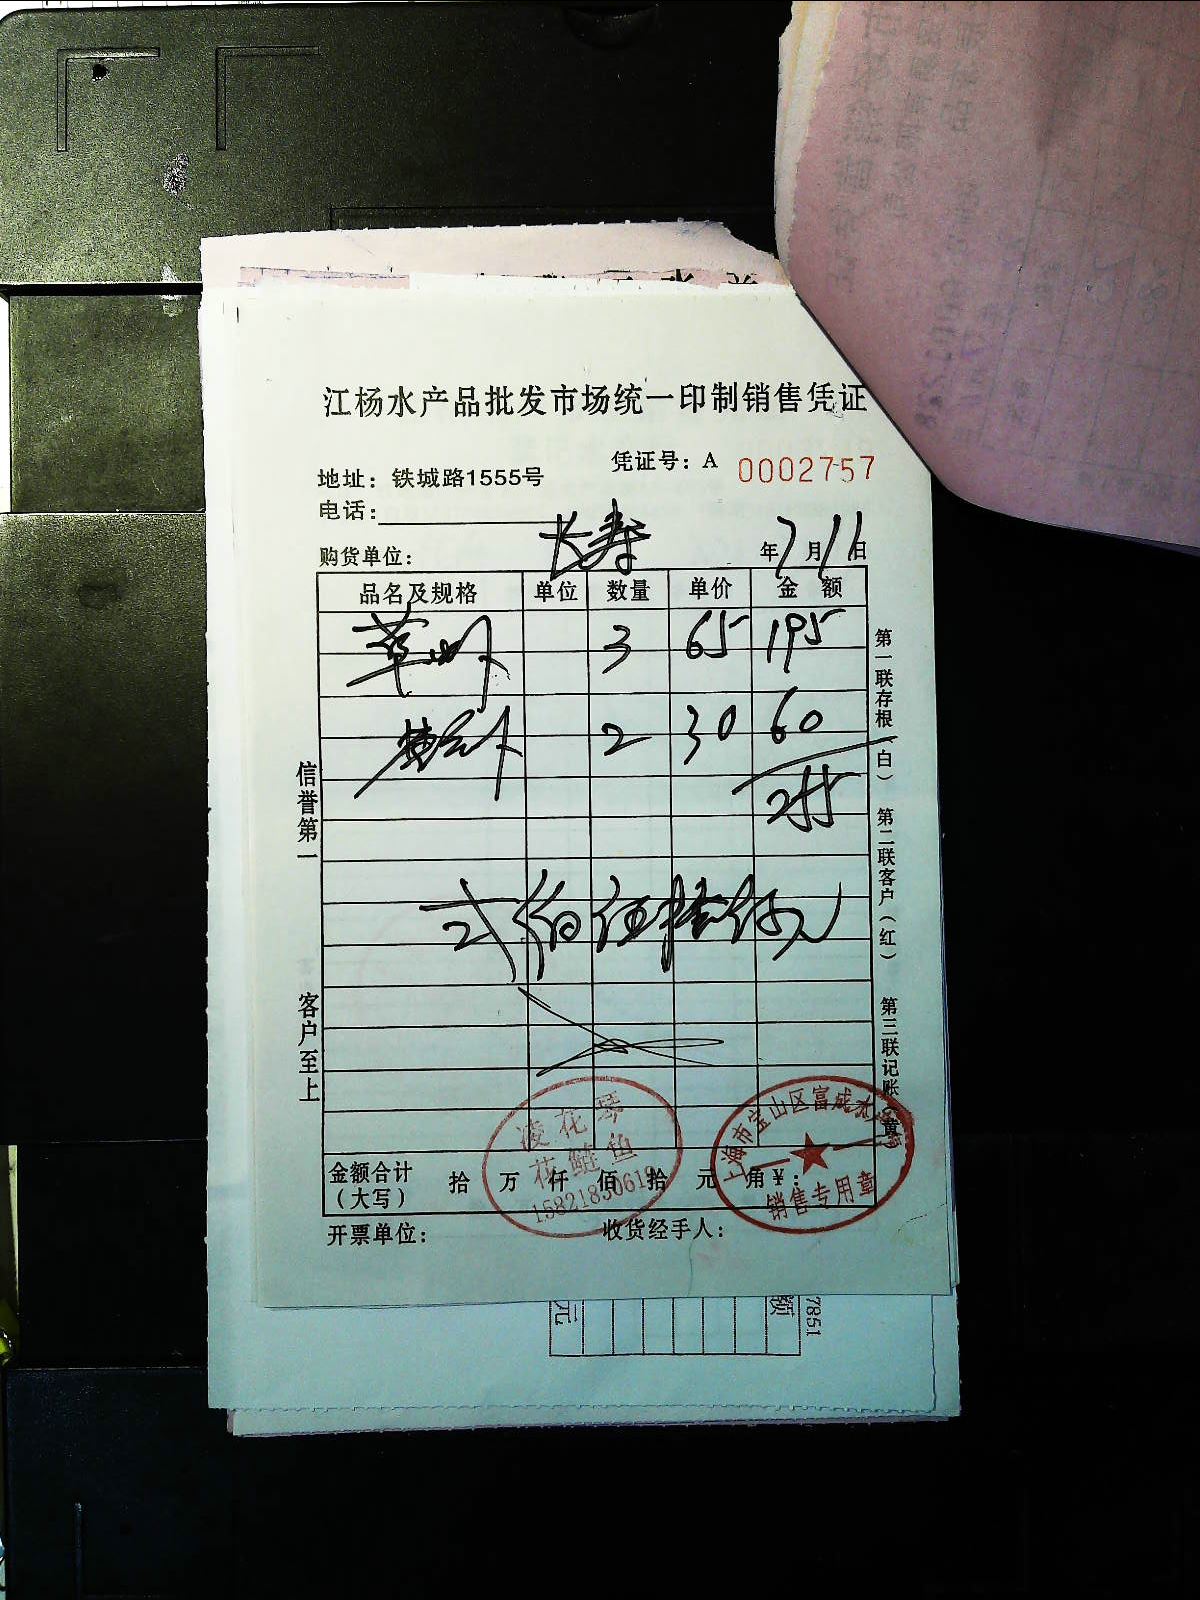 江杨水产品批发市场统一印制销售凭证
凭证号：A 0002757
地址：铁城路1555号
电话：
购货单位：长寿 年7月11日
品名及规格 单位 数量 单价 金额
3 65 195
2 30 60
255
弍佰伍拾伍元
金额合计（大写） 拾 万 仟 佰 拾 元 角 ¥：
开票单位： 收货经手人：
信誉第一 客户至上
第一联存根（白） 第二联客户（红） 第三联记账（黄）
凌花琴
花鲢鱼
1582183061
上海市宝山区富成水
销售专用章
额
元
7851